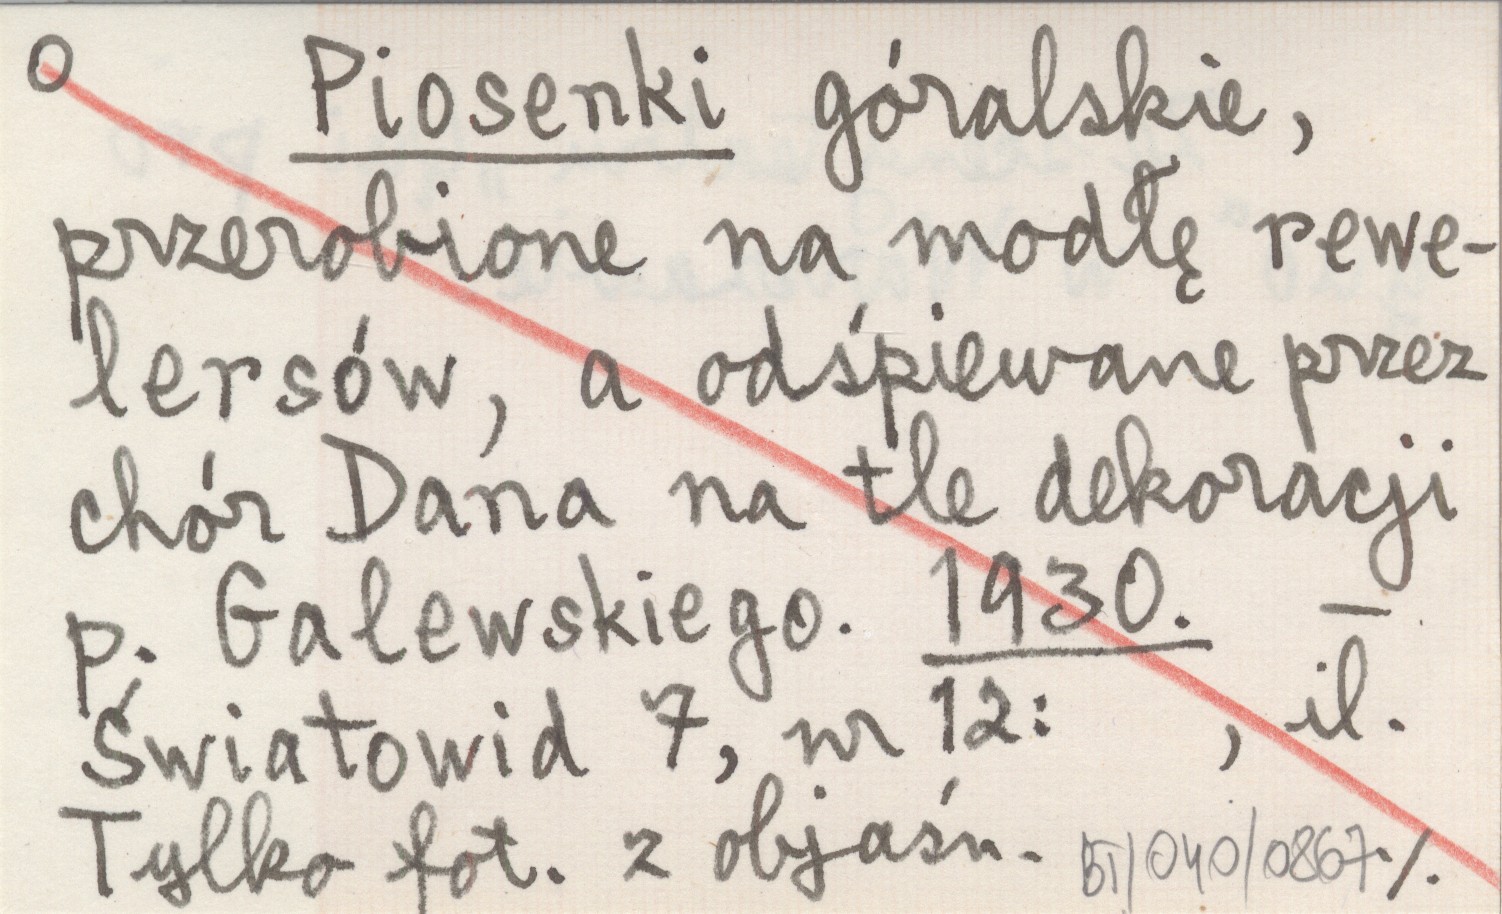 O Piosenki góralskie,
przerobione na modłę rewe-
lersów, a odśpiewane przez
chór Dana na tle dekoracji
p. Galewskiego. 1930. —
Światowid 7, nr 12: , il.
Tylko fot. z objaśn. BT/040/0867 ./.